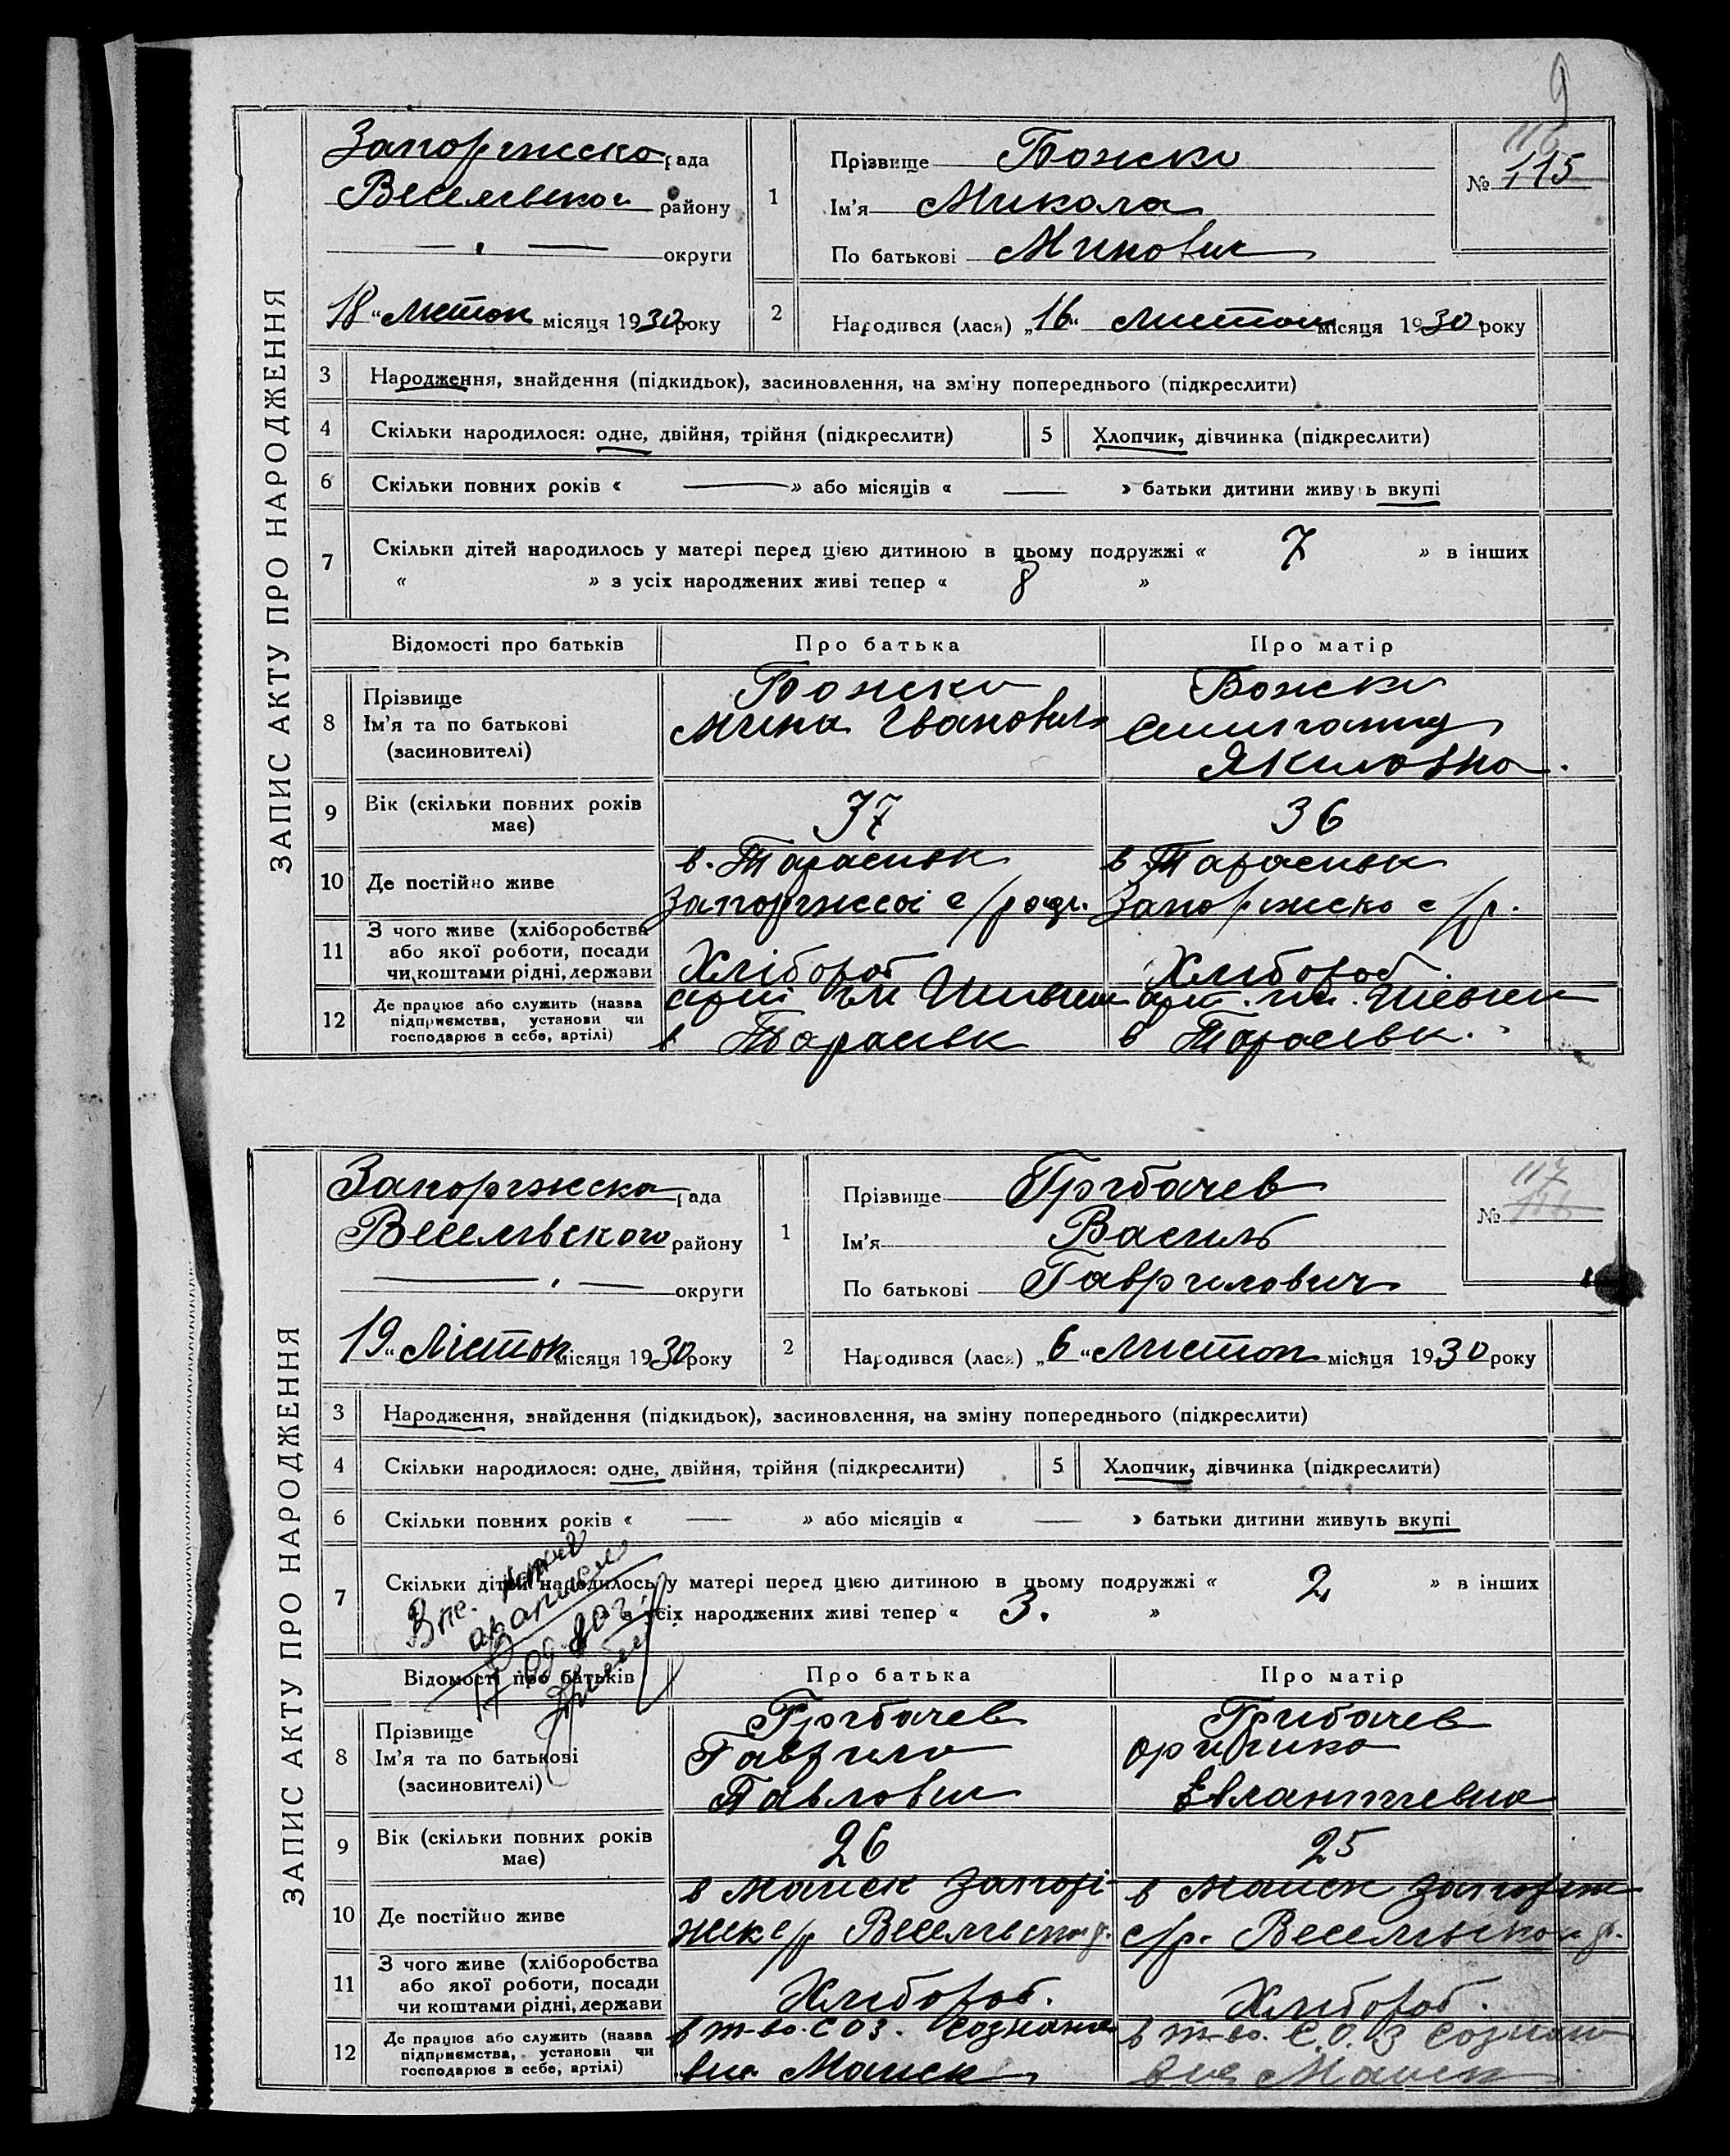 9
ЗАПИС АКТУ ПРО НАРОДЖЕННЯ
Запоріжско рада
Веселівского району
округи
18 „ листоп місяця 1930 року
1
Прізвище Божко
Ім'я Микола
По батькові Минович
116
№ 115
2
Народився (лася) „16“ листоп місяця 1930 року
3 Народження, знайдення (підкидьок), засиновлення, на зміну попереднього (підкреслити)
4 Скільки народилося: одне, двійня, трійня (підкреслити) 5 Хлопчик, дівчинка (підкреслити)
6 Скільки повних років « — » або місяців « — » батьки дитини живуть вкупі
7 Скільки дітей народилось у матері перед цією дитиною в цьому подружжі « 7 » в інших
« » з усіх народжених живі тепер « 8 »
Відомості про батьків Про батька Про матір
8 Прізвище
Ім'я та по батькові
(засиновителі)
Божко
Мина Іванович
Божко
Якиловна.
9 Вік (скільки повних років має) 37 36
10 Де постійно живе
в. Тарасивк
Запоріжскої с/рад.
в Тарасивк
Запоріжско с/р.
11 З чого живе (хліборобства
або якої роботи, посади
чи коштами рідні, держави
Хлібороб
Хлибороб.
12 Де працює або служить (назва
підприємства, установи чи
господарює в себе, артілі)
в Тарасівк
в Тарасівк.
ЗАПИС АКТУ ПРО НАРОДЖЕННЯ
Запоріжско рада
Веселивского району
округи
19 „ Лістоп місяця 1930 року
1
Прізвище Грібачев
Ім'я Василь
По батькові Гаврилович
117
№ 116
2
Народився (лася) „6“ листоп місяця 1930 року
3 Народження, знайдення (підкидьок), засиновлення, на зміну попереднього (підкреслити)
4 Скільки народилося: одне, двійня, трійня (підкреслити) 5 Хлопчик, дівчинка (підкреслити)
6 Скільки повних років « — » або місяців « — » батьки дитини живуть вкупі
7 Скільки дітей народилось у матері перед цією дитиною в цьому подружжі « 2 » в інших
з усіх народжених живі тепер « 3. »
Відомості про батьків Про батька Про матір
8 Прізвище
Ім'я та по батькові
(засиновителі)
Грібачев
Гаврило
Павлович
Грибачев
Евлантиевна
9 Вік (скільки повних років має) 26 25
10 Де постійно живе
в Маиск Запорі-
жск с/р Веселівског р.
в Маиск Запоріж
с/р. Веселивског р.
11 З чого живе (хліборобства
або якої роботи, посади
чи коштами рідні, держави
Хлибороб.
Хлибороб.
12 Де працює або служить (назва
підприємства, установи чи
господарює в себе, артілі)
в т-во. СОЗ.
Маиск
в т-во. С.О.З
Маиск